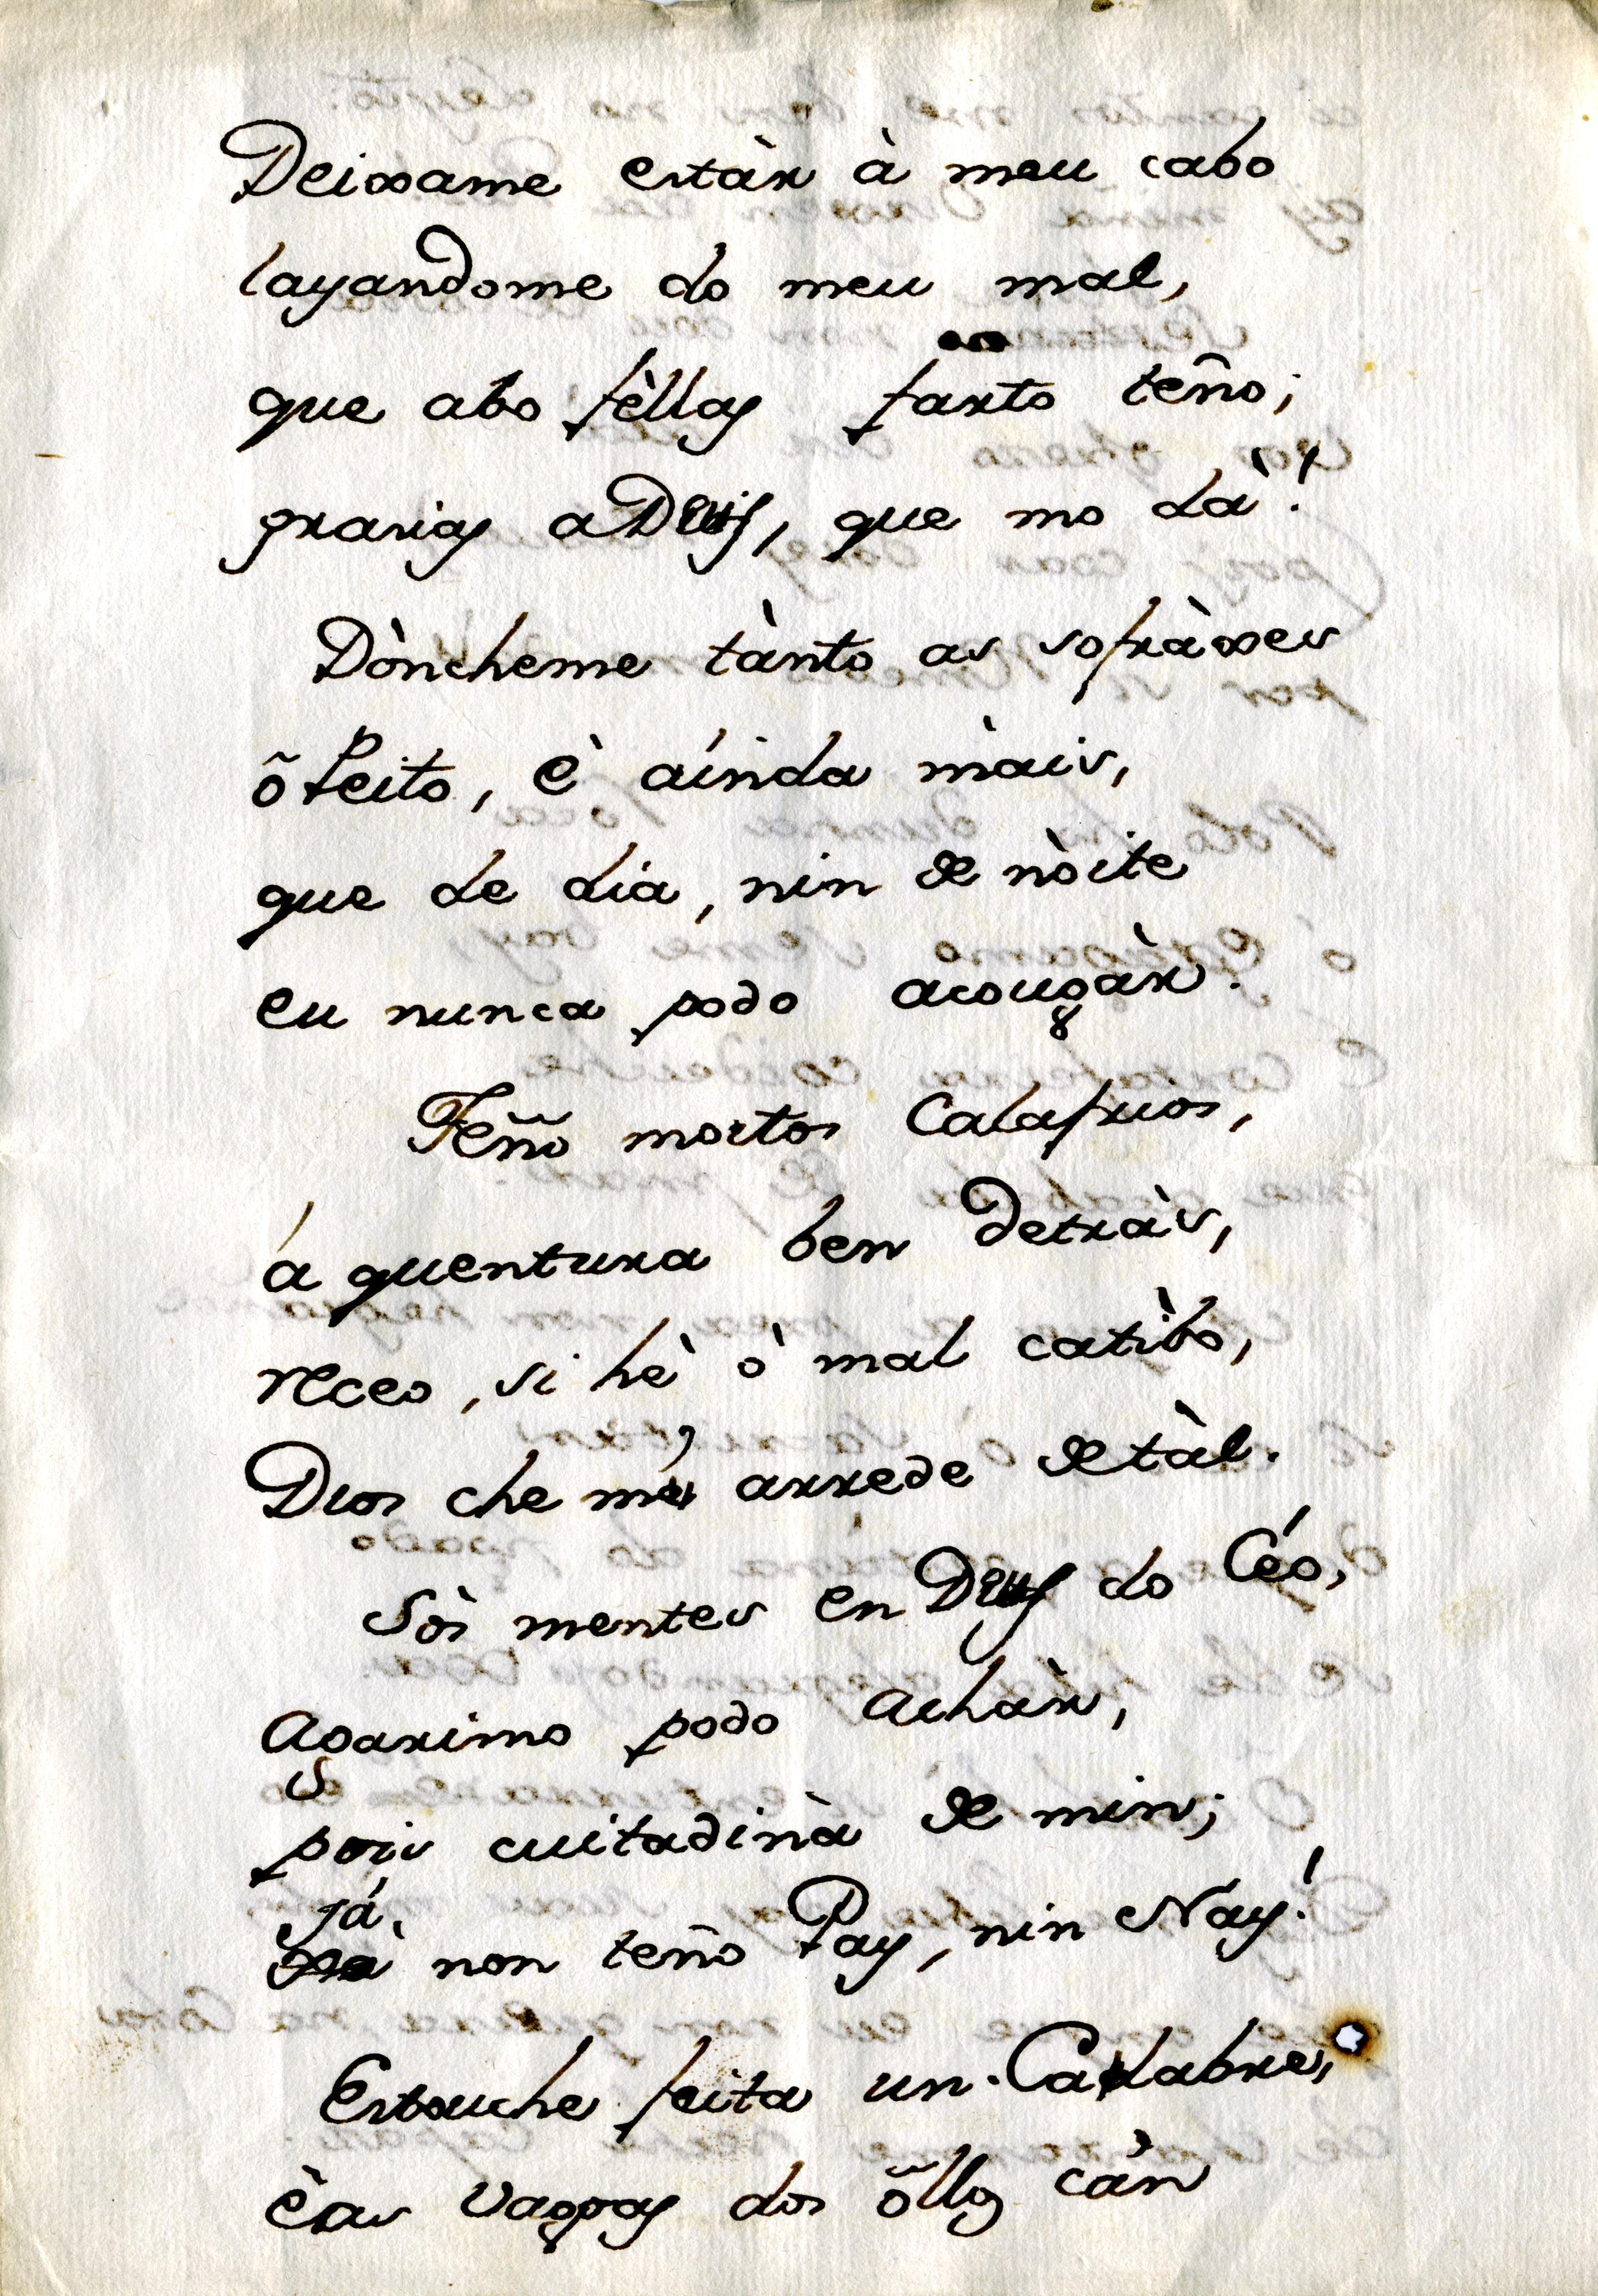 Deixame estàr à meu cabo
layandome do meu mal,
que abo fèllas farto teño;
gracias a Deus, que mo dà!
Dòncheme tànto as sofràxes
õ Peito, è aínda màis,
que de dia, nin de nòite
eu nunca podo acougàr.
Teño mortos Calafrios,
á quentura ben detràs,
receo, si hè ò mal catibo,
Dios che me arrede de tàl.
Sòs mentes en Deus do Céo,
Agarimo podo achàr,
pois cuitadiñà de min;
Já,
non teño Pay, nin Nay!
Estouche feita un Cadabre,
è as vagoas dos õllos càn